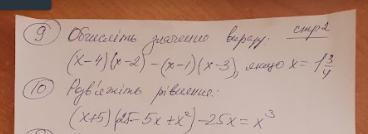 9 Обчисліть значення виразу. стр2
(x-4)(x-2)-(x-1)(x-3), якщо x=1 3/4
10 Розв'яжіть рівняння:
(x+5)(25-5x+x²)-25x=x³